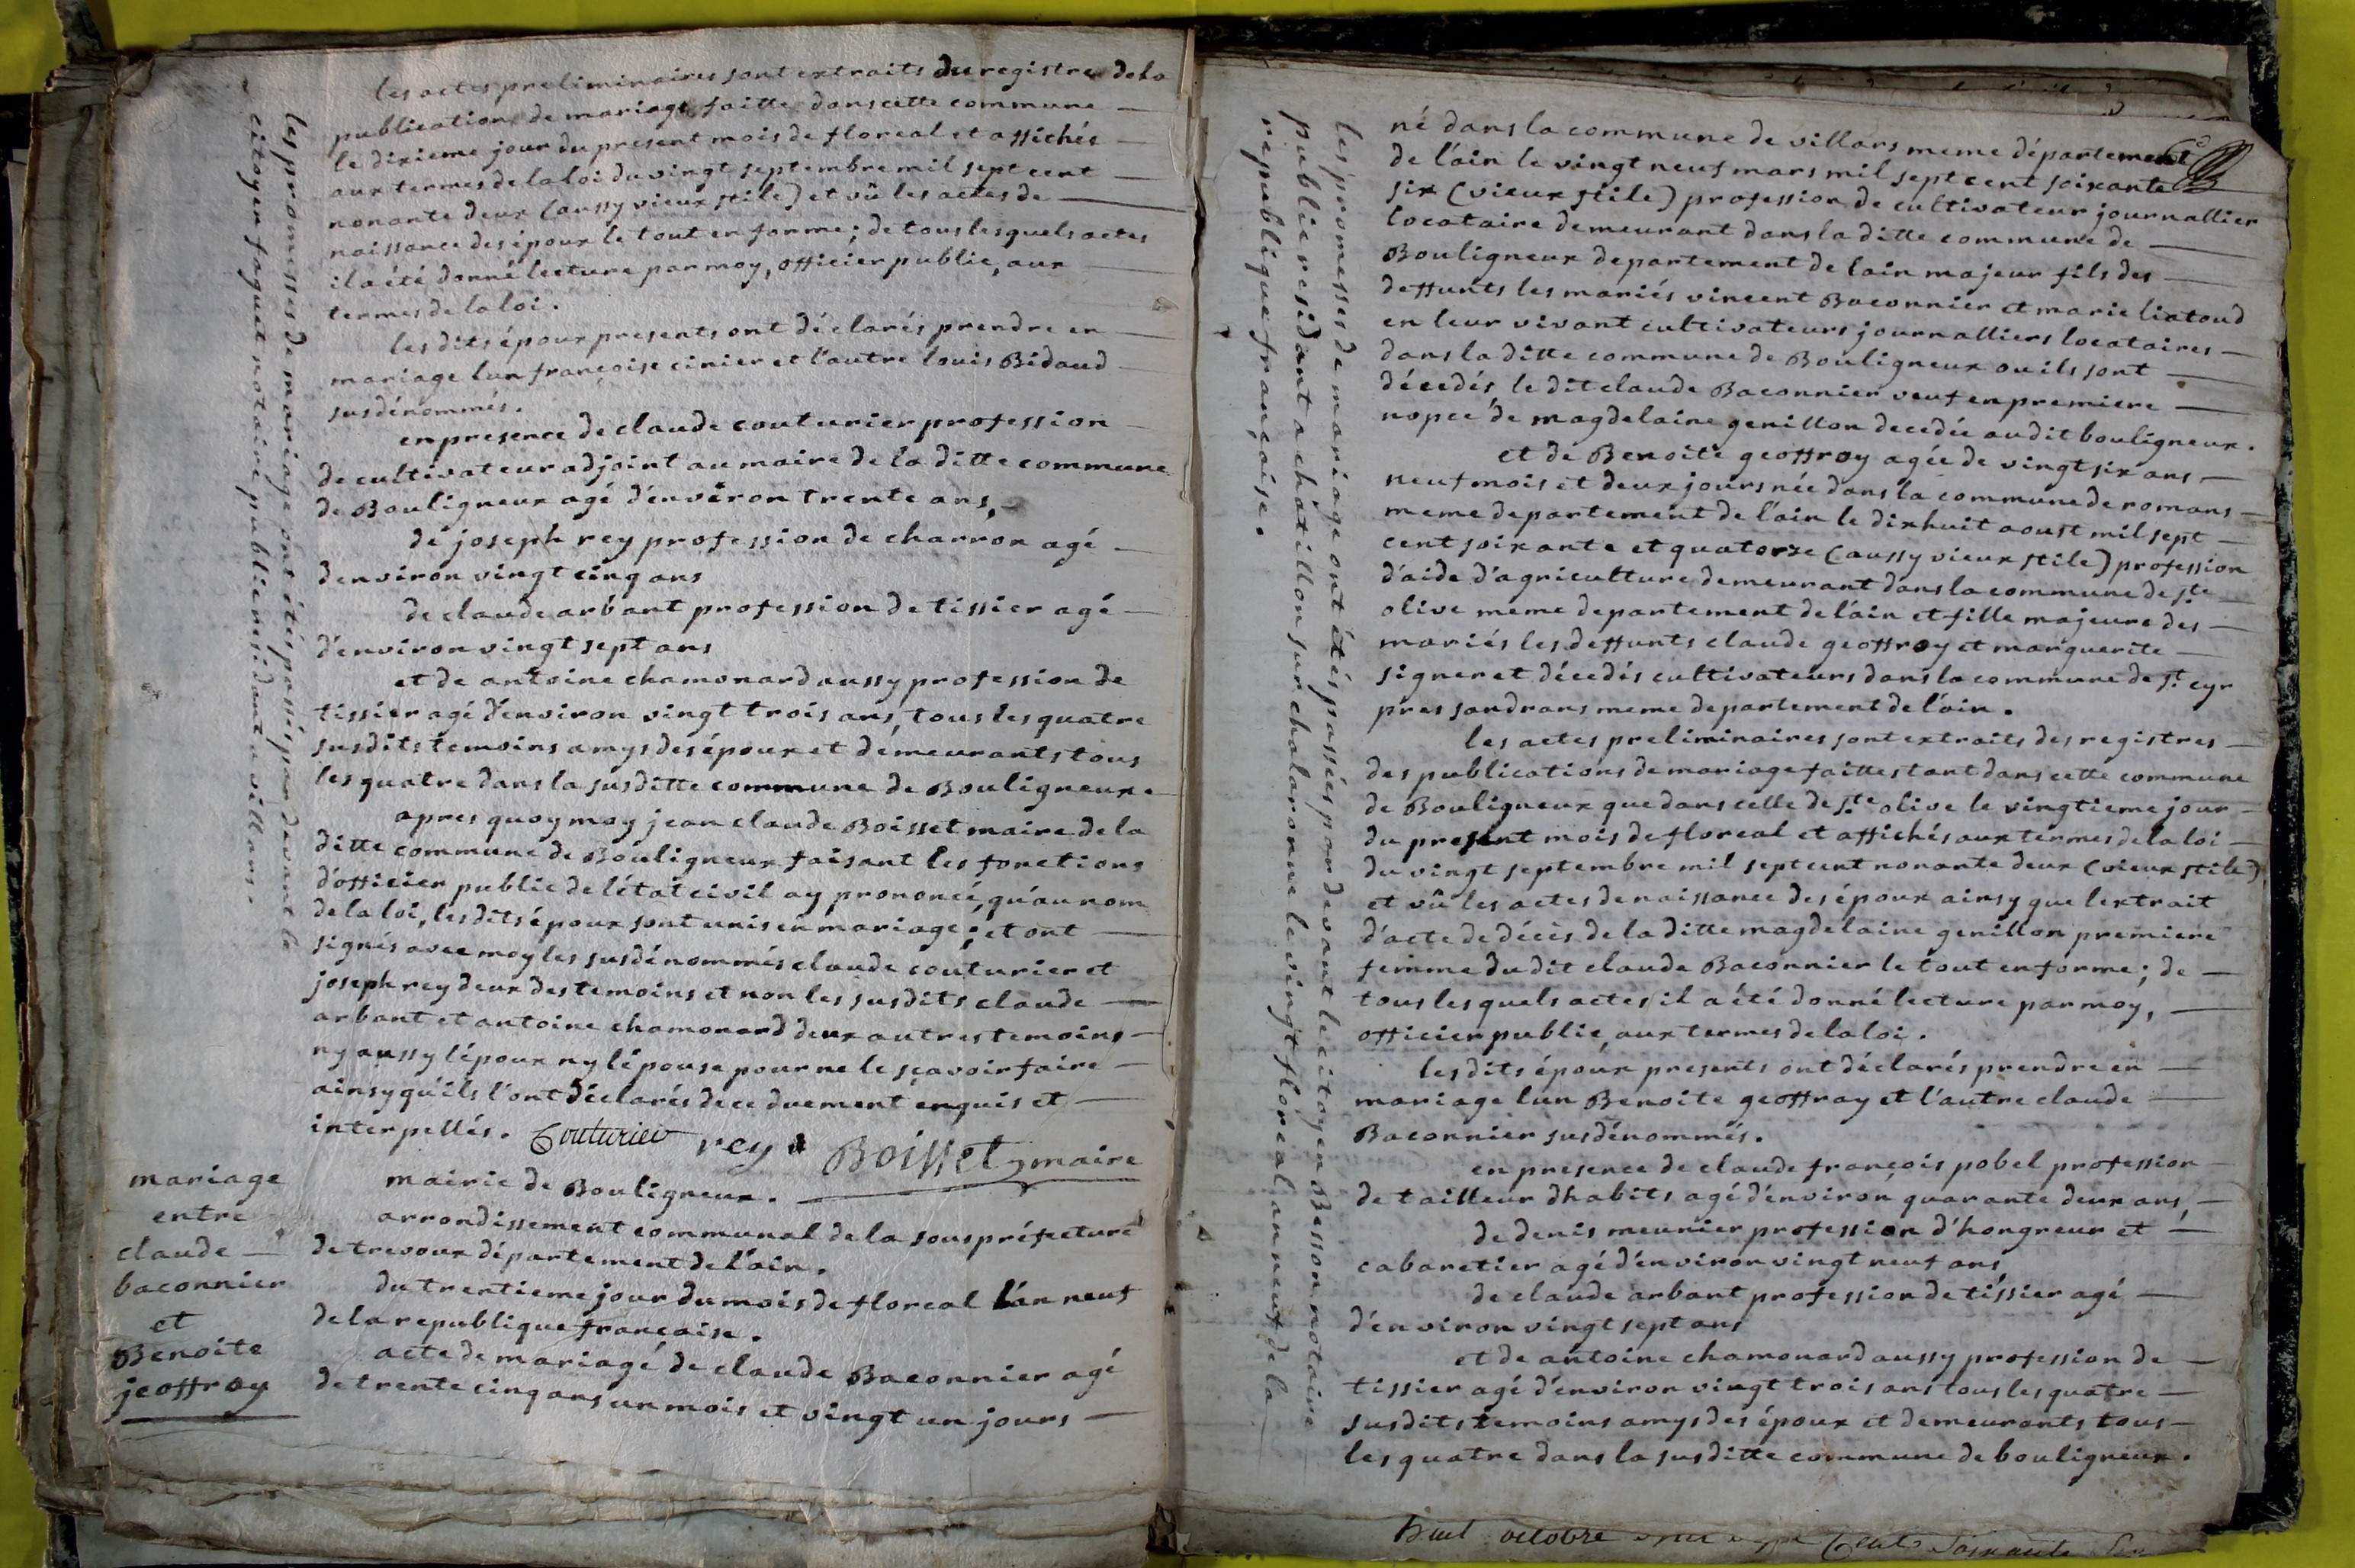 les actes preliminaires sont extraits du registre de la
publication de mariage faitte dans cette commune
le dixieme jour du present mois de floreal et affichés
aux termes de la loi du vingt septembre mil sept cent
nonante deux (aussy vieux stile) et vû les actes de
naissance des époux le tout en forme; de tous lesquels actes
il a été donné lecture par moy, officier public, aux
termes de la loi.
les dits époux presents ont déclarés prendre en
mariage l'un françoise cinier et l'autre louis Bidaud
susdénommés.
en presence de claude couturier profession
de cultivateur adjoint au maire de la ditte commune
de Bouligneux agé d'environ trente ans,
de joseph rey profession de charron agé
d'environ vingt cinq ans
de claude arbant profession de tissier agé
d'environ vingt sept ans
et de antoine chamonard aussy profession de
tissier agé d'environ vingt trois ans, tous les quatre
susdits temoins amys des époux et démeurants tous
les quatre dans la susditte commune de Bouligneux.
apres quoy moy jean claude Boisset maire de la
ditte commune de Bouligneux faisant les fonctions
d'officier public de l'état civil ay prononcé, qu'au nom
de la loi, les dits époux sont unis en mariage; et ont
signés avec moy les susdénommés claude couturier et
joseph rey deux des temoins et non les susdits claude
arbant et antoine chamonard deux autres temoins
ny aussy l'époux ny l'épouse pour ne le sçavoir faire
ainsy qu'ils l'ont déclarés de ce duement enquis et
interpellés. Couturier rey Boisset maire
les promesses de mariage ont étés passés par devant le
citoyen faguet notaire public residant a villars.
mariage
entre
claude
baconnier
et
Benoite
jeoffroy
mairie de Bouligneux.
arrondissement communal de la souspréfecture
de trevoux département de l'ain.
du trentieme jour du mois de floreal l'an neuf
de la republique française.
acte de mariagé de claude Baconnier agé
de trente cinq ans un mois et vingt un jours
né dans la commune de villars meme département
de l'ain le vingt neuf mars mil sept cent soixante
six (vieux stile) profession de cultivateur journallier
locataire demeurant dans la ditte commune de
Bouligneux departement de lain majeur fils des
deffunts les mariés vincent Baconnier et marie liatoud
en leur vivant cultivateurs journalliers locataires
dans la ditte commune de Bouligneux ou ils sont
décedés, le dit claude Baconnier veuf en premiere
nopce de magdelaine genillon decedée audit bouligneux.
et de Benoite geoffroy agée de vingt six ans
neuf mois et deux jours née dans la commune de romans
meme departement de l'ain le dixhuit aoust mil sept
cent soixante et quatorze (aussy vieux stile) profession
d'aide d'agriculture demeurant dans la commune de ste
olive meme departement de l'ain et fille majeure des
mariés les deffunts claude geoffroy et marguerite
signeret décedés cultivateurs dans la commune de st cyr
pres sandrans meme departement de l'ain.
les actes preliminaires sont extraits des registres
des publications de mariage faittes tant dans cette commune
de Bouligneux que dans celle de ste olive le vingtieme jour
du present mois de floreal et affichés aux termes de la loi
du vingt septembre mil sept cent nonante deux (vieux stile)
et vû les actes de naissance des époux ainsy que l'extrait
d'acte de décès de la ditte magdelaine genillon premiere
femme du dit claude Baconnier le tout en forme; de
tous lesquels actes il a été donné lecture par moy,
officier public, aux termes de la loi.
les dits époux presents ont déclarés prendre en
mariage l'un Benoite geoffray et l'autre claude
Baconnier susdénommés.
en presence de claude françois pobel profession
de tailleur d'habits agé d'environ quarante deux ans,
de denis meunier profession d'hongreur et
cabaretier agé d'environ vingt neuf ans
de claude arbant profession de tissier agé
d'environ vingt sept ans
et de antoine chamonard aussy profession de
tissier agé d'environ vingt trois ans tous les quatre
susdits temoins amys des époux et demeurants tous
les quatre dans la susditte commune de bouligneux.
les promesses de mariage ont étés passées par devant le citoyen Besson notaire
public residant a chatillon sur chalaronne le vingt floreal an neuf de la
republique française.
huit octobre